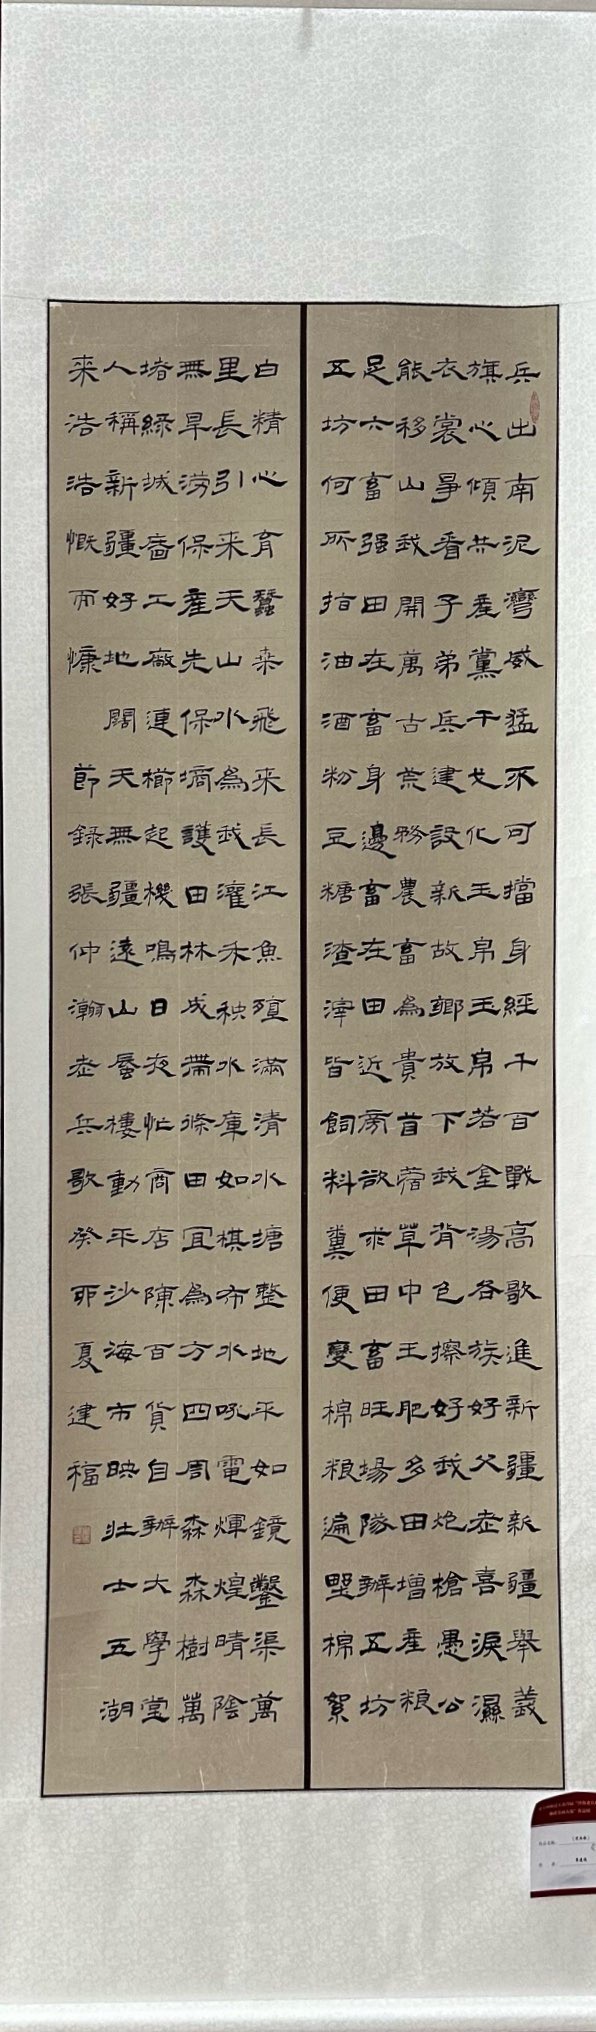 兵出南泥灣威猛不可擋身經千百戰高歌進新疆新疆舉義
旗心傾共產黨干戈化玉帛玉帛若金湯各族好父老喜淚濕
衣裳爭看子弟兵建設新故鄉放下我背包擦好我炮槍愚公
能移山我開萬古荒務農畜為貴苜蓿草中王肥多田增產粮
足六畜强田在畜身邊畜在田近旁欲求田畜旺場隊辦五坊
五坊何所指油酒粉豆糖渣滓皆飼料糞便變棉粮遍野棉絮
白精心育蠶桑飛来長江魚殖滿清水塘整地平如鏡鑿渠萬
里長引来天山水為我灌禾秧水庫如棋布水吼電煇煌晴陰
無旱澇保產先保墒護田林成帶條田宜為方四周森森樹萬
堵綠城嗇工廠連櫛起機鳴日夜忙商店陳百貨自辦大學堂
人稱新疆好地闊天無疆遠山蜃樓動平沙海市映壯士五湖
来浩浩慨而慷 節録張仲瀚老兵歌癸卯夏建福